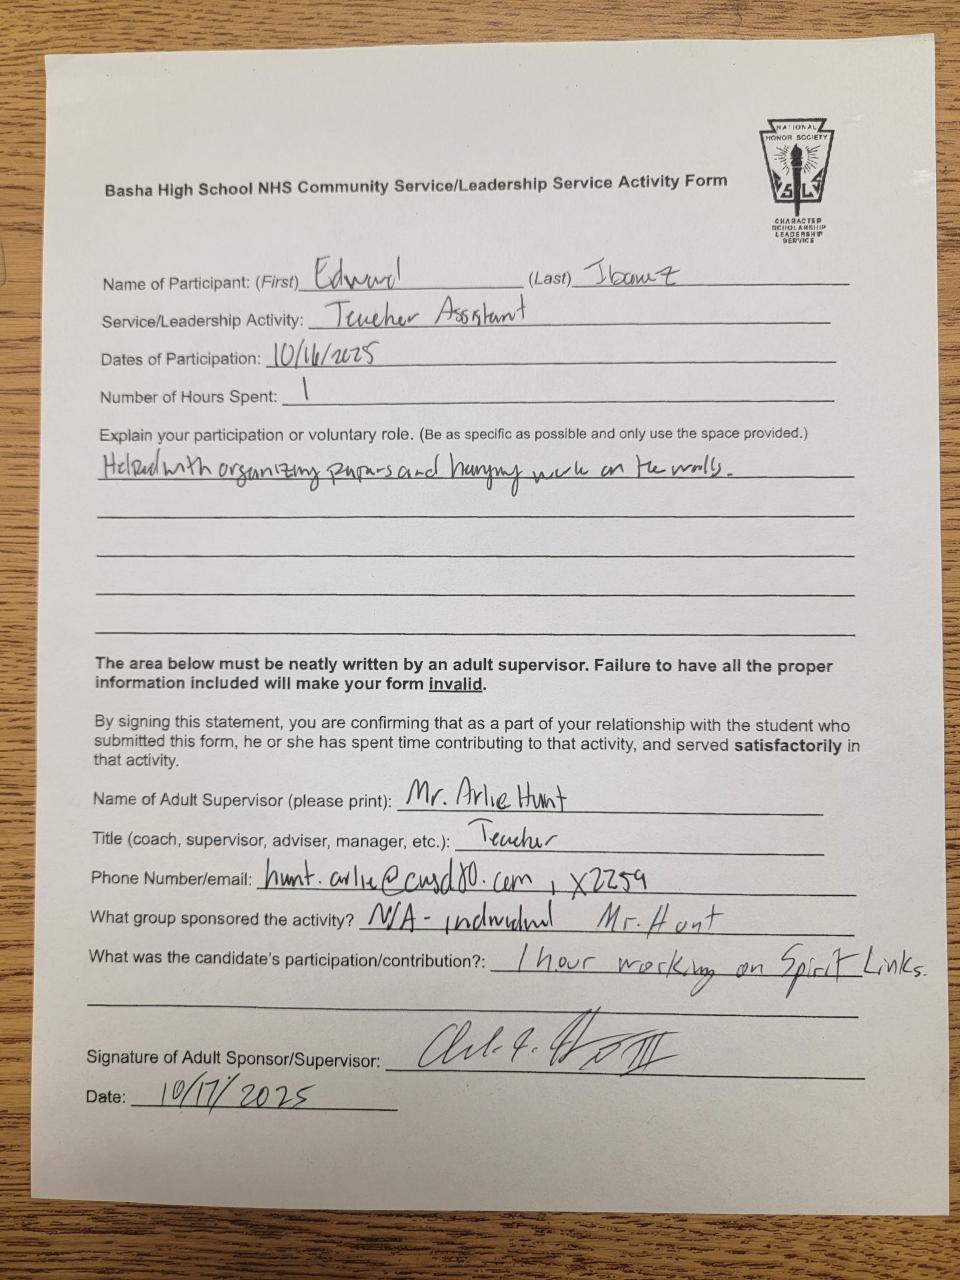 NATIONAL
HONOR SOCIETY
S L
CHARACTER
SCHOLARSHIP
LEADERSHIP
SERVICE
Basha High School NHS Community Service/Leadership Service Activity Form
Name of Participant: (First) Edward (Last) Ibanez
Service/Leadership Activity: Teacher Assistant
Dates of Participation: 10/16/2025
Number of Hours Spent: 1
Explain your participation or voluntary role. (Be as specific as possible and only use the space provided.)
Helped with organizing papers and hanging work on the walls.
The area below must be neatly written by an adult supervisor. Failure to have all the proper
information included will make your form invalid.
By signing this statement, you are confirming that as a part of your relationship with the student who
submitted this form, he or she has spent time contributing to that activity, and served satisfactorily in
that activity.
Name of Adult Supervisor (please print): Mr. Arlie Hunt
Title (coach, supervisor, adviser, manager, etc.): Teacher
Phone Number/email: hunt.arlie@cusd80.com, x2259
What group sponsored the activity? N/A - individual Mr. Hunt
What was the candidate's participation/contribution?: 1 hour working on Spirit Links.
Signature of Adult Sponsor/Supervisor:
Date: 10/17/2025